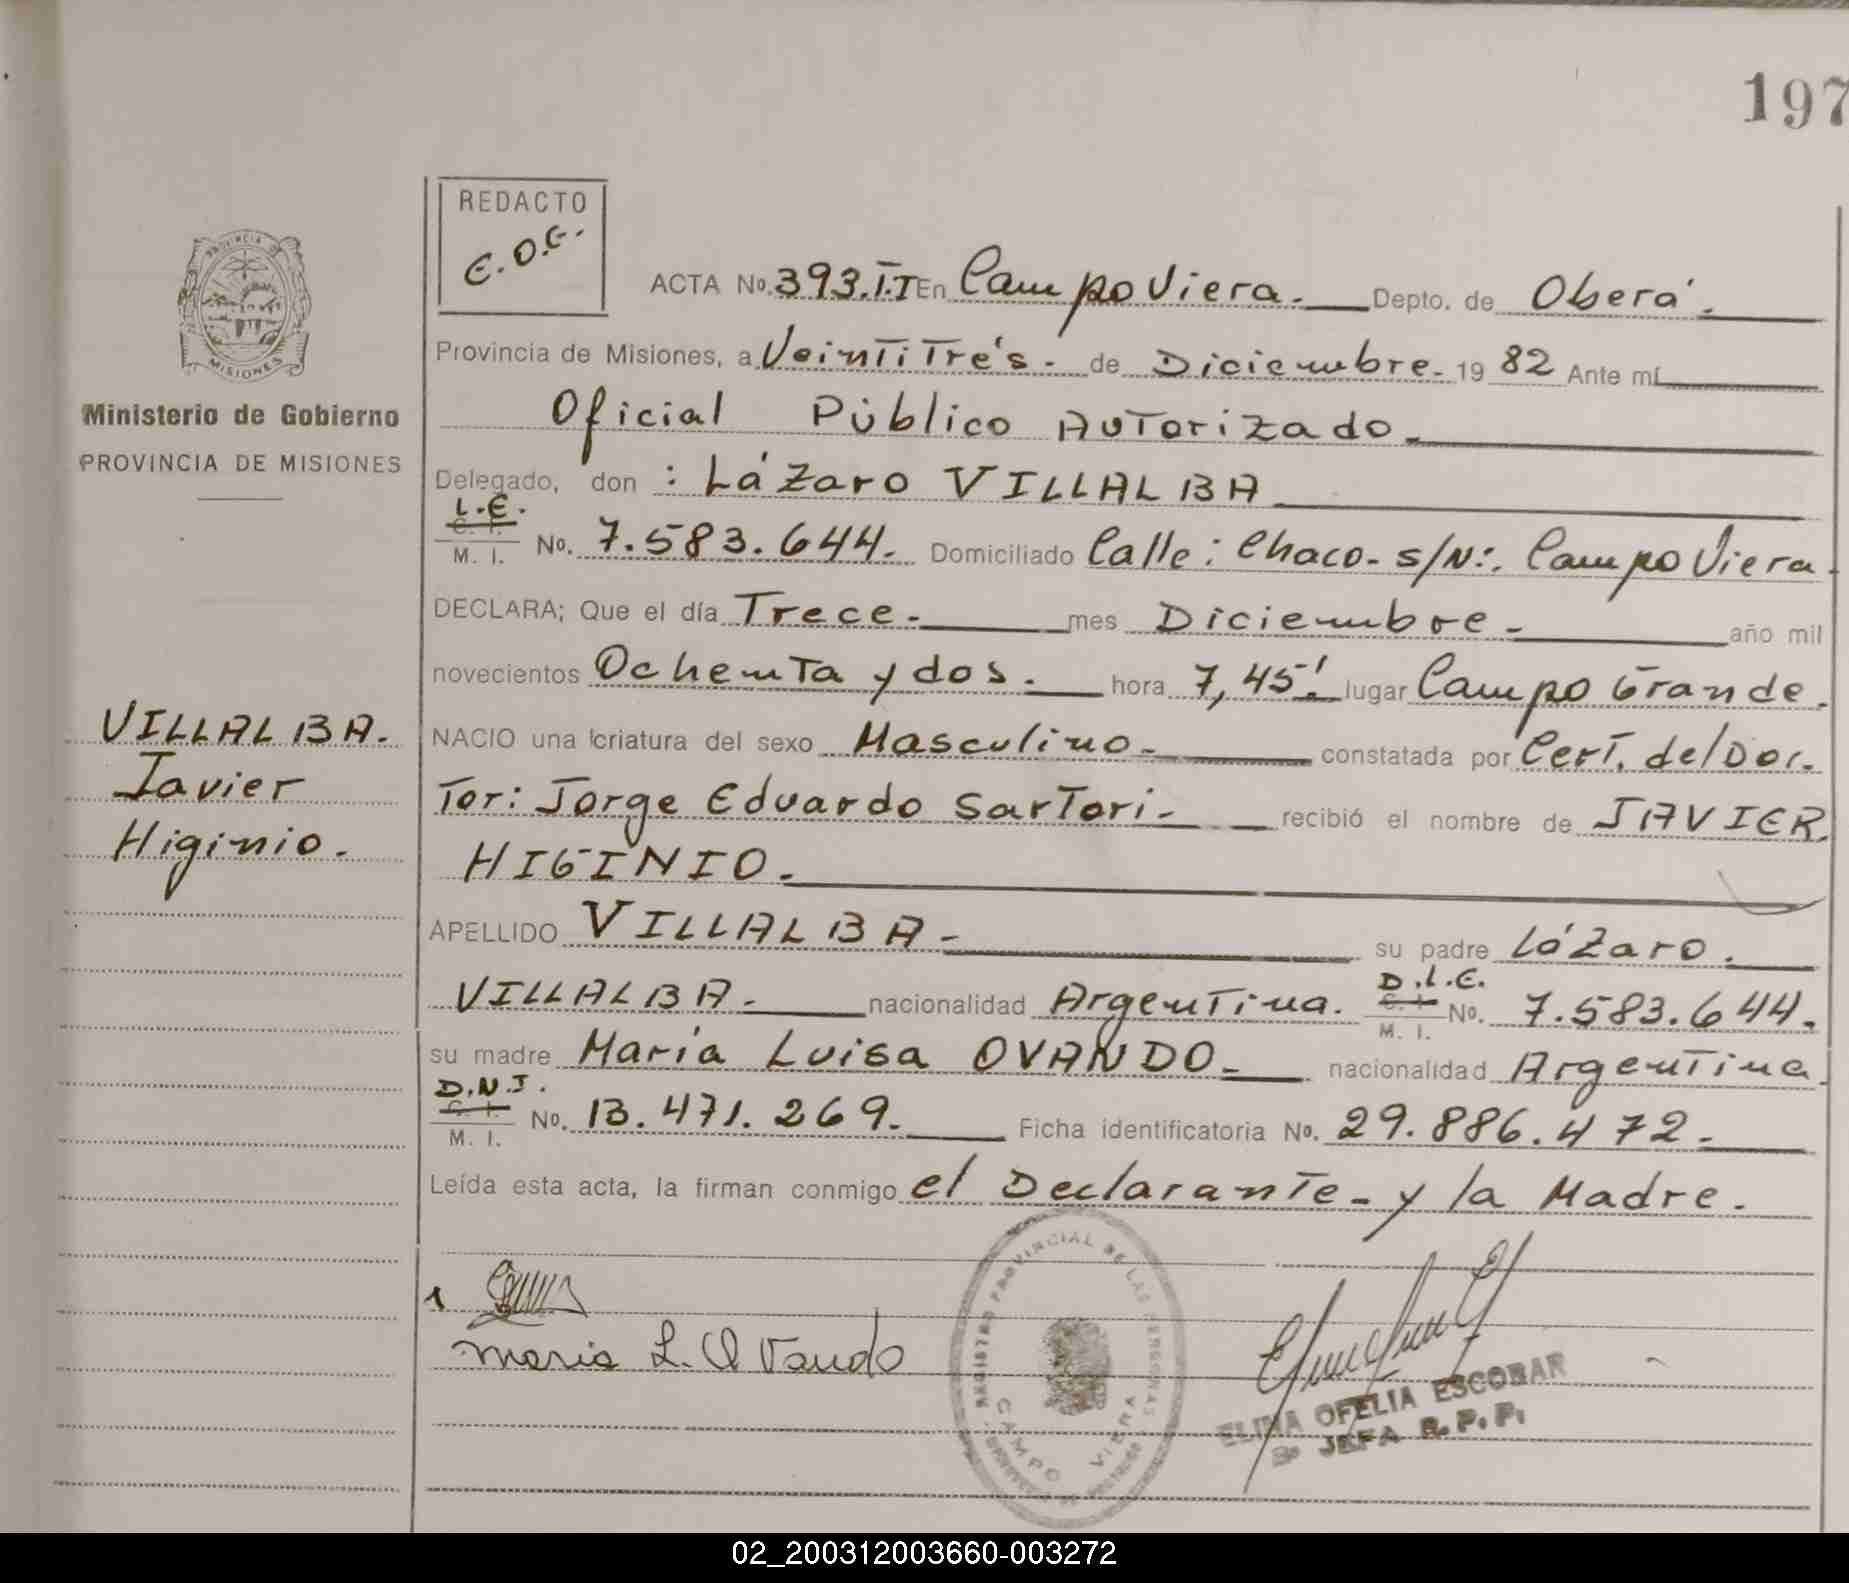 197
REDACTO
E.O.E.
PROVINCIA DE
MISIONES
Ministerio de Gobierno
PROVINCIA DE MISIONES
VILLALBA.
Javier
Higinio.
ACTA No. 393.T.I En Campo Viera. Depto. de Oberá.
Provincia de Misiones, a Veintitrés. de Diciembre. 19 82 Ante mí
Oficial Público Autorizado.
Delegado, don : Lázaro VILLALBA
L.E.
C. I.
M. I. No. 7.583.644. Domiciliado Calle: Chaco. s/N:. Campo Viera.
DECLARA; Que el día Trece. mes Diciembre. año mil
novecientos Ochenta y dos. hora 7,45'. lugar Campo Grande.
NACIO una criatura del sexo Masculino. constatada por Cert. del Doc.
Tor: Jorge Eduardo Sartori. recibió el nombre de JAVIER
HIGINIO.
APELLIDO VILLALBA. su padre Lázaro.
D.L.E.
VILLALBA. nacionalidad Argentina. C. I. M. I. No. 7.583.644.
su madre María Luisa OVANDO. nacionalidad Argentina.
D.N.I.
C. I.
M. I. No. 13.471.269. Ficha identificatoria No. 29.886.472.
Leída esta acta, la firman conmigo el Declarante. y la Madre.
Maria L. Ovando
REGISTRO PROVINCIAL DE LAS PERSONAS
CAMPO VIERA
ELINA OFELIA ESCOBAR
JEFA R. P. P.
02_200312003660-003272